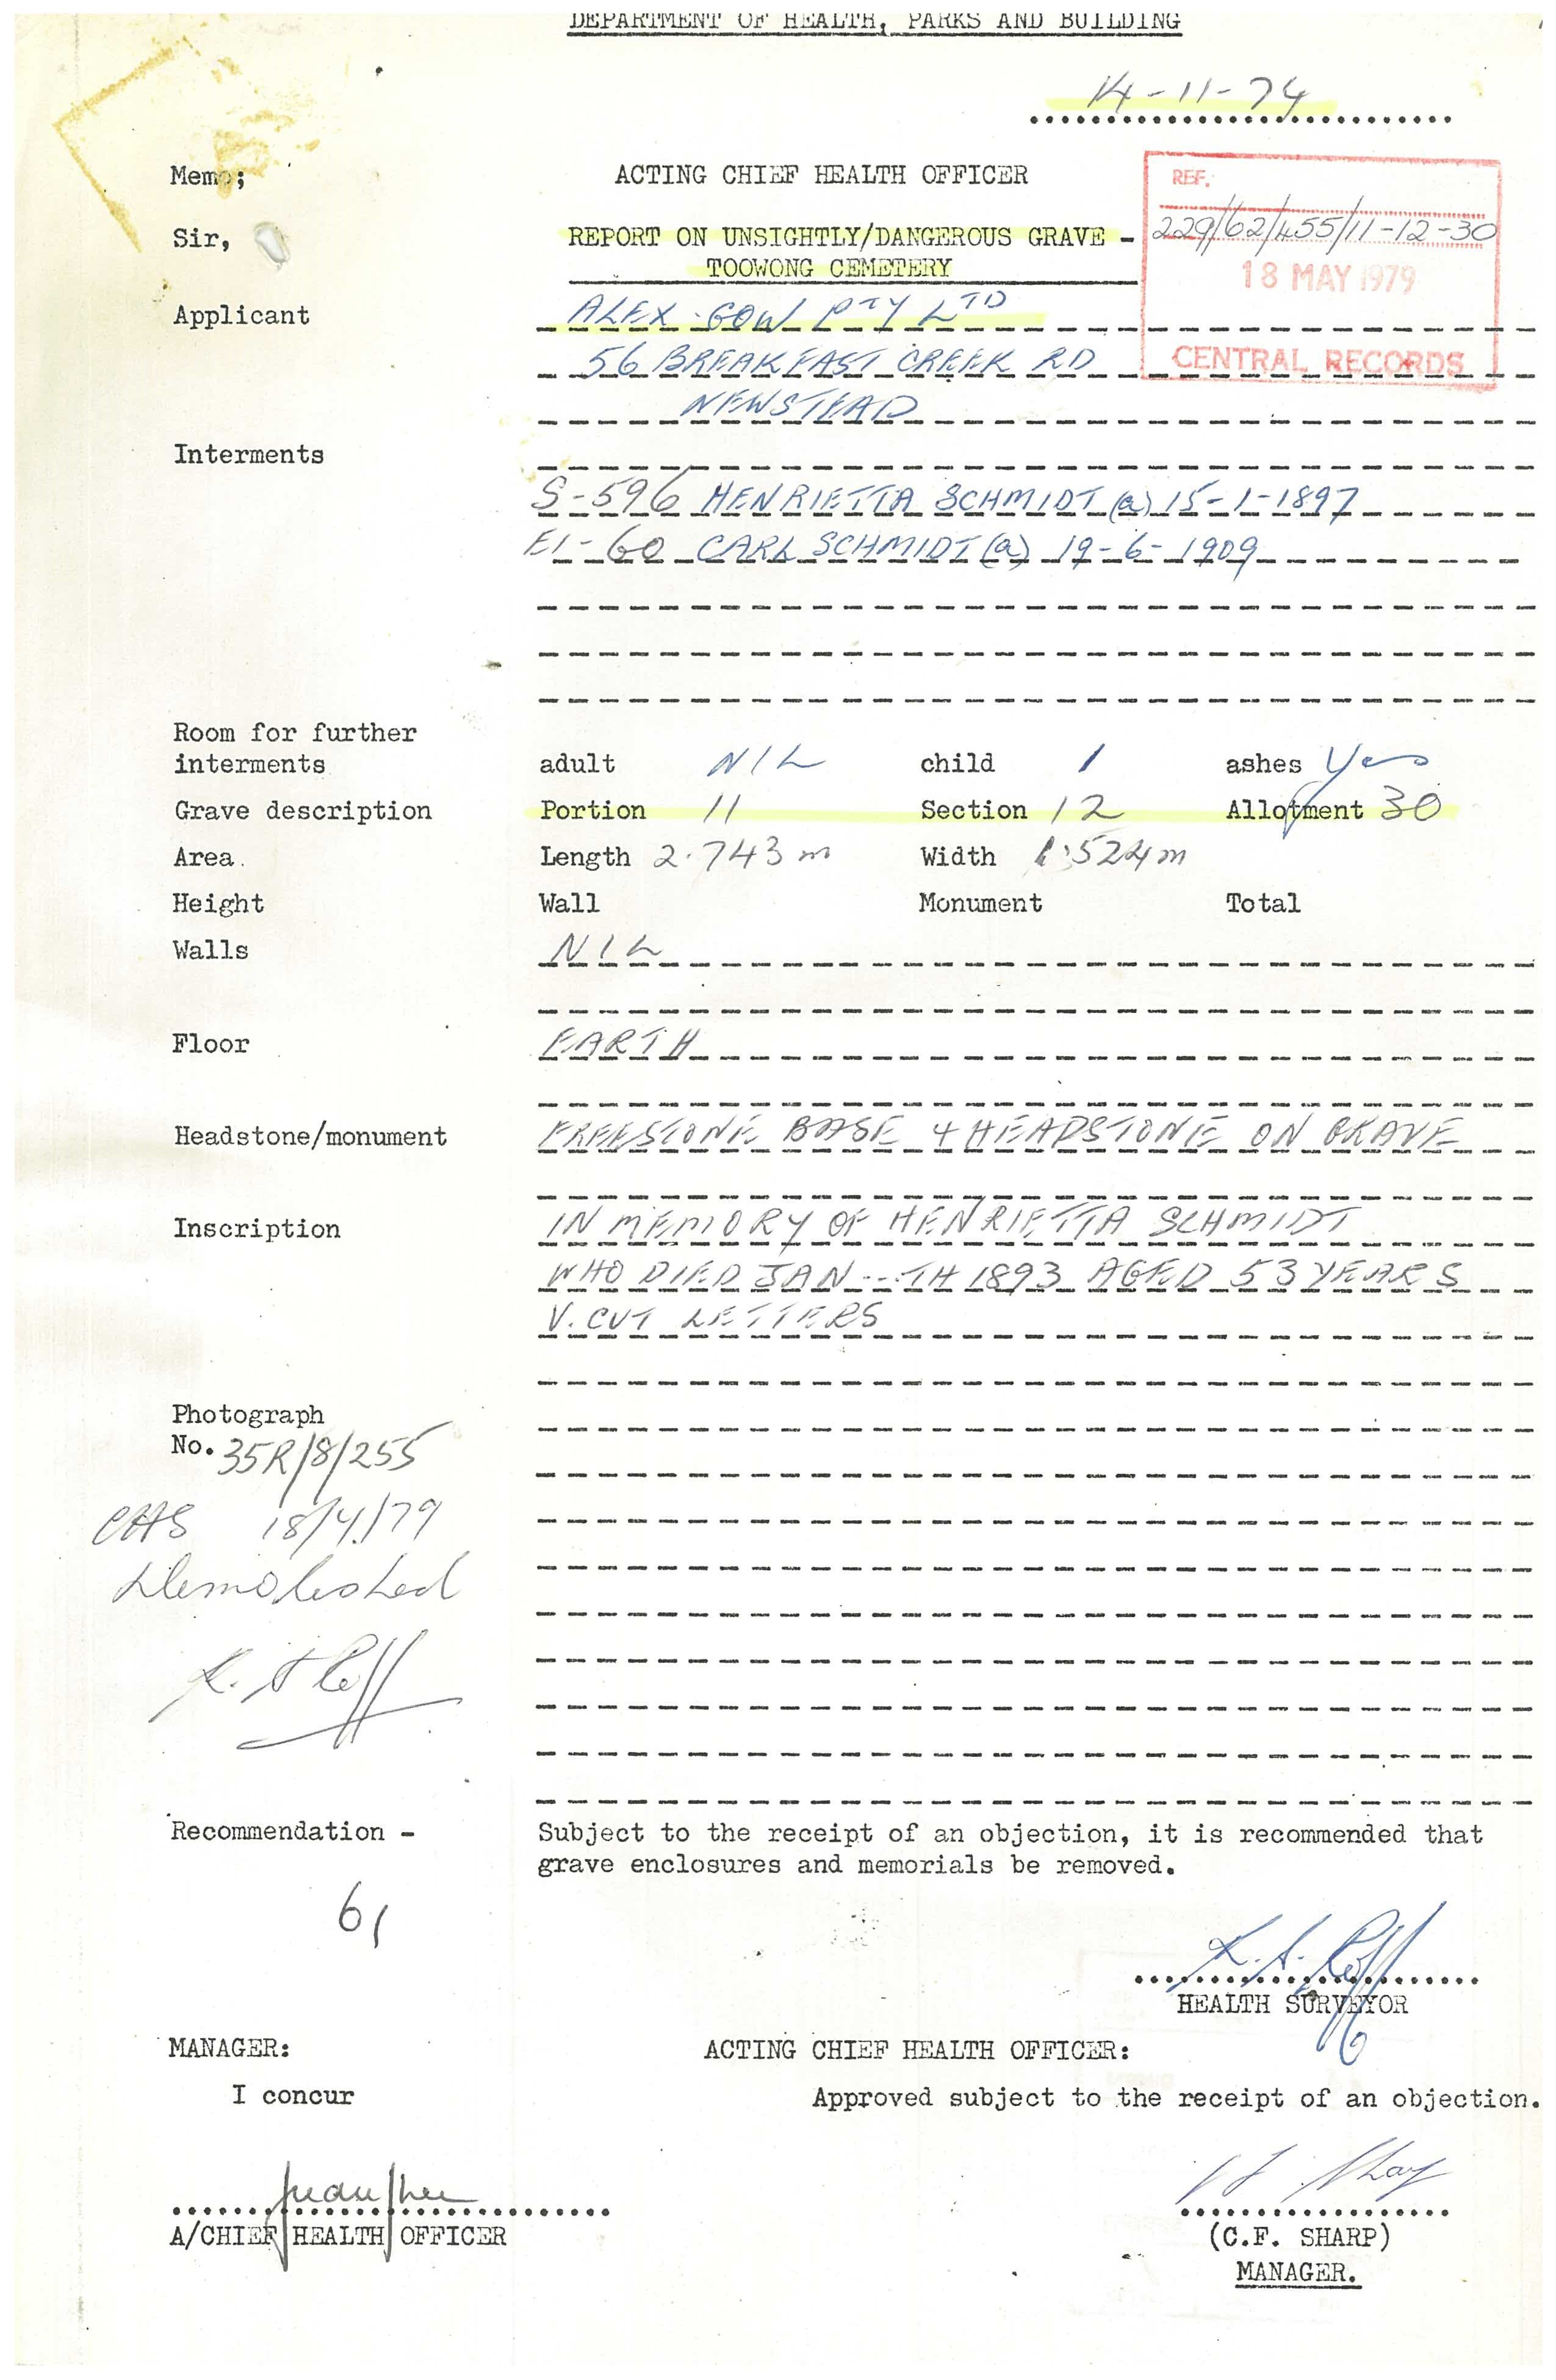 DEPARTMENT OF HEALTH, PARKS AND BUILDING
14-11-74
Memo;
ACTING CHIEF HEALTH OFFICER
REF.
Sir,
REPORT ON UNSIGHTLY/DANGEROUS GRAVE -
229/62/455/11-12-30
TOOWONG CEMETERY
18 MAY 1979
Applicant
ALEX GOW PTY LTD
56 BREAKFAST CREEK RD
CENTRAL RECORDS
NEWSTEAD
Interments
S-596 HENRIETTA SCHMIDT (a) 15-1-1897
E1-60 CARL SCHMIDT (a) 19-6-1909
Room for further
interments
adult NIL child 1 ashes Yes
Grave description Portion 11 Section 12 Allotment 30
Area. Length 2.743 m Width 1.524 m
Height Wall Monument Total
Walls NIL
Floor EARTH
Headstone/monument FREESTONE BASE + HEADSTONE ON GRAVE
Inscription IN MEMORY OF HENRIETTA SCHMIDT
WHO DIED JAN -- TH 1893 AGED 53 YEARS
V. CUT LETTERS
Photograph
No. 35R/8/255
CHS 18/4/79
Demolished
K. A Roff
Recommendation - Subject to the receipt of an objection, it is recommended that
grave enclosures and memorials be removed.
61
K. A. Roff
HEALTH SURVEYOR
MANAGER: ACTING CHIEF HEALTH OFFICER:
I concur Approved subject to the receipt of an objection.
A/CHIEF HEALTH OFFICER
(C.F. SHARP)
MANAGER.